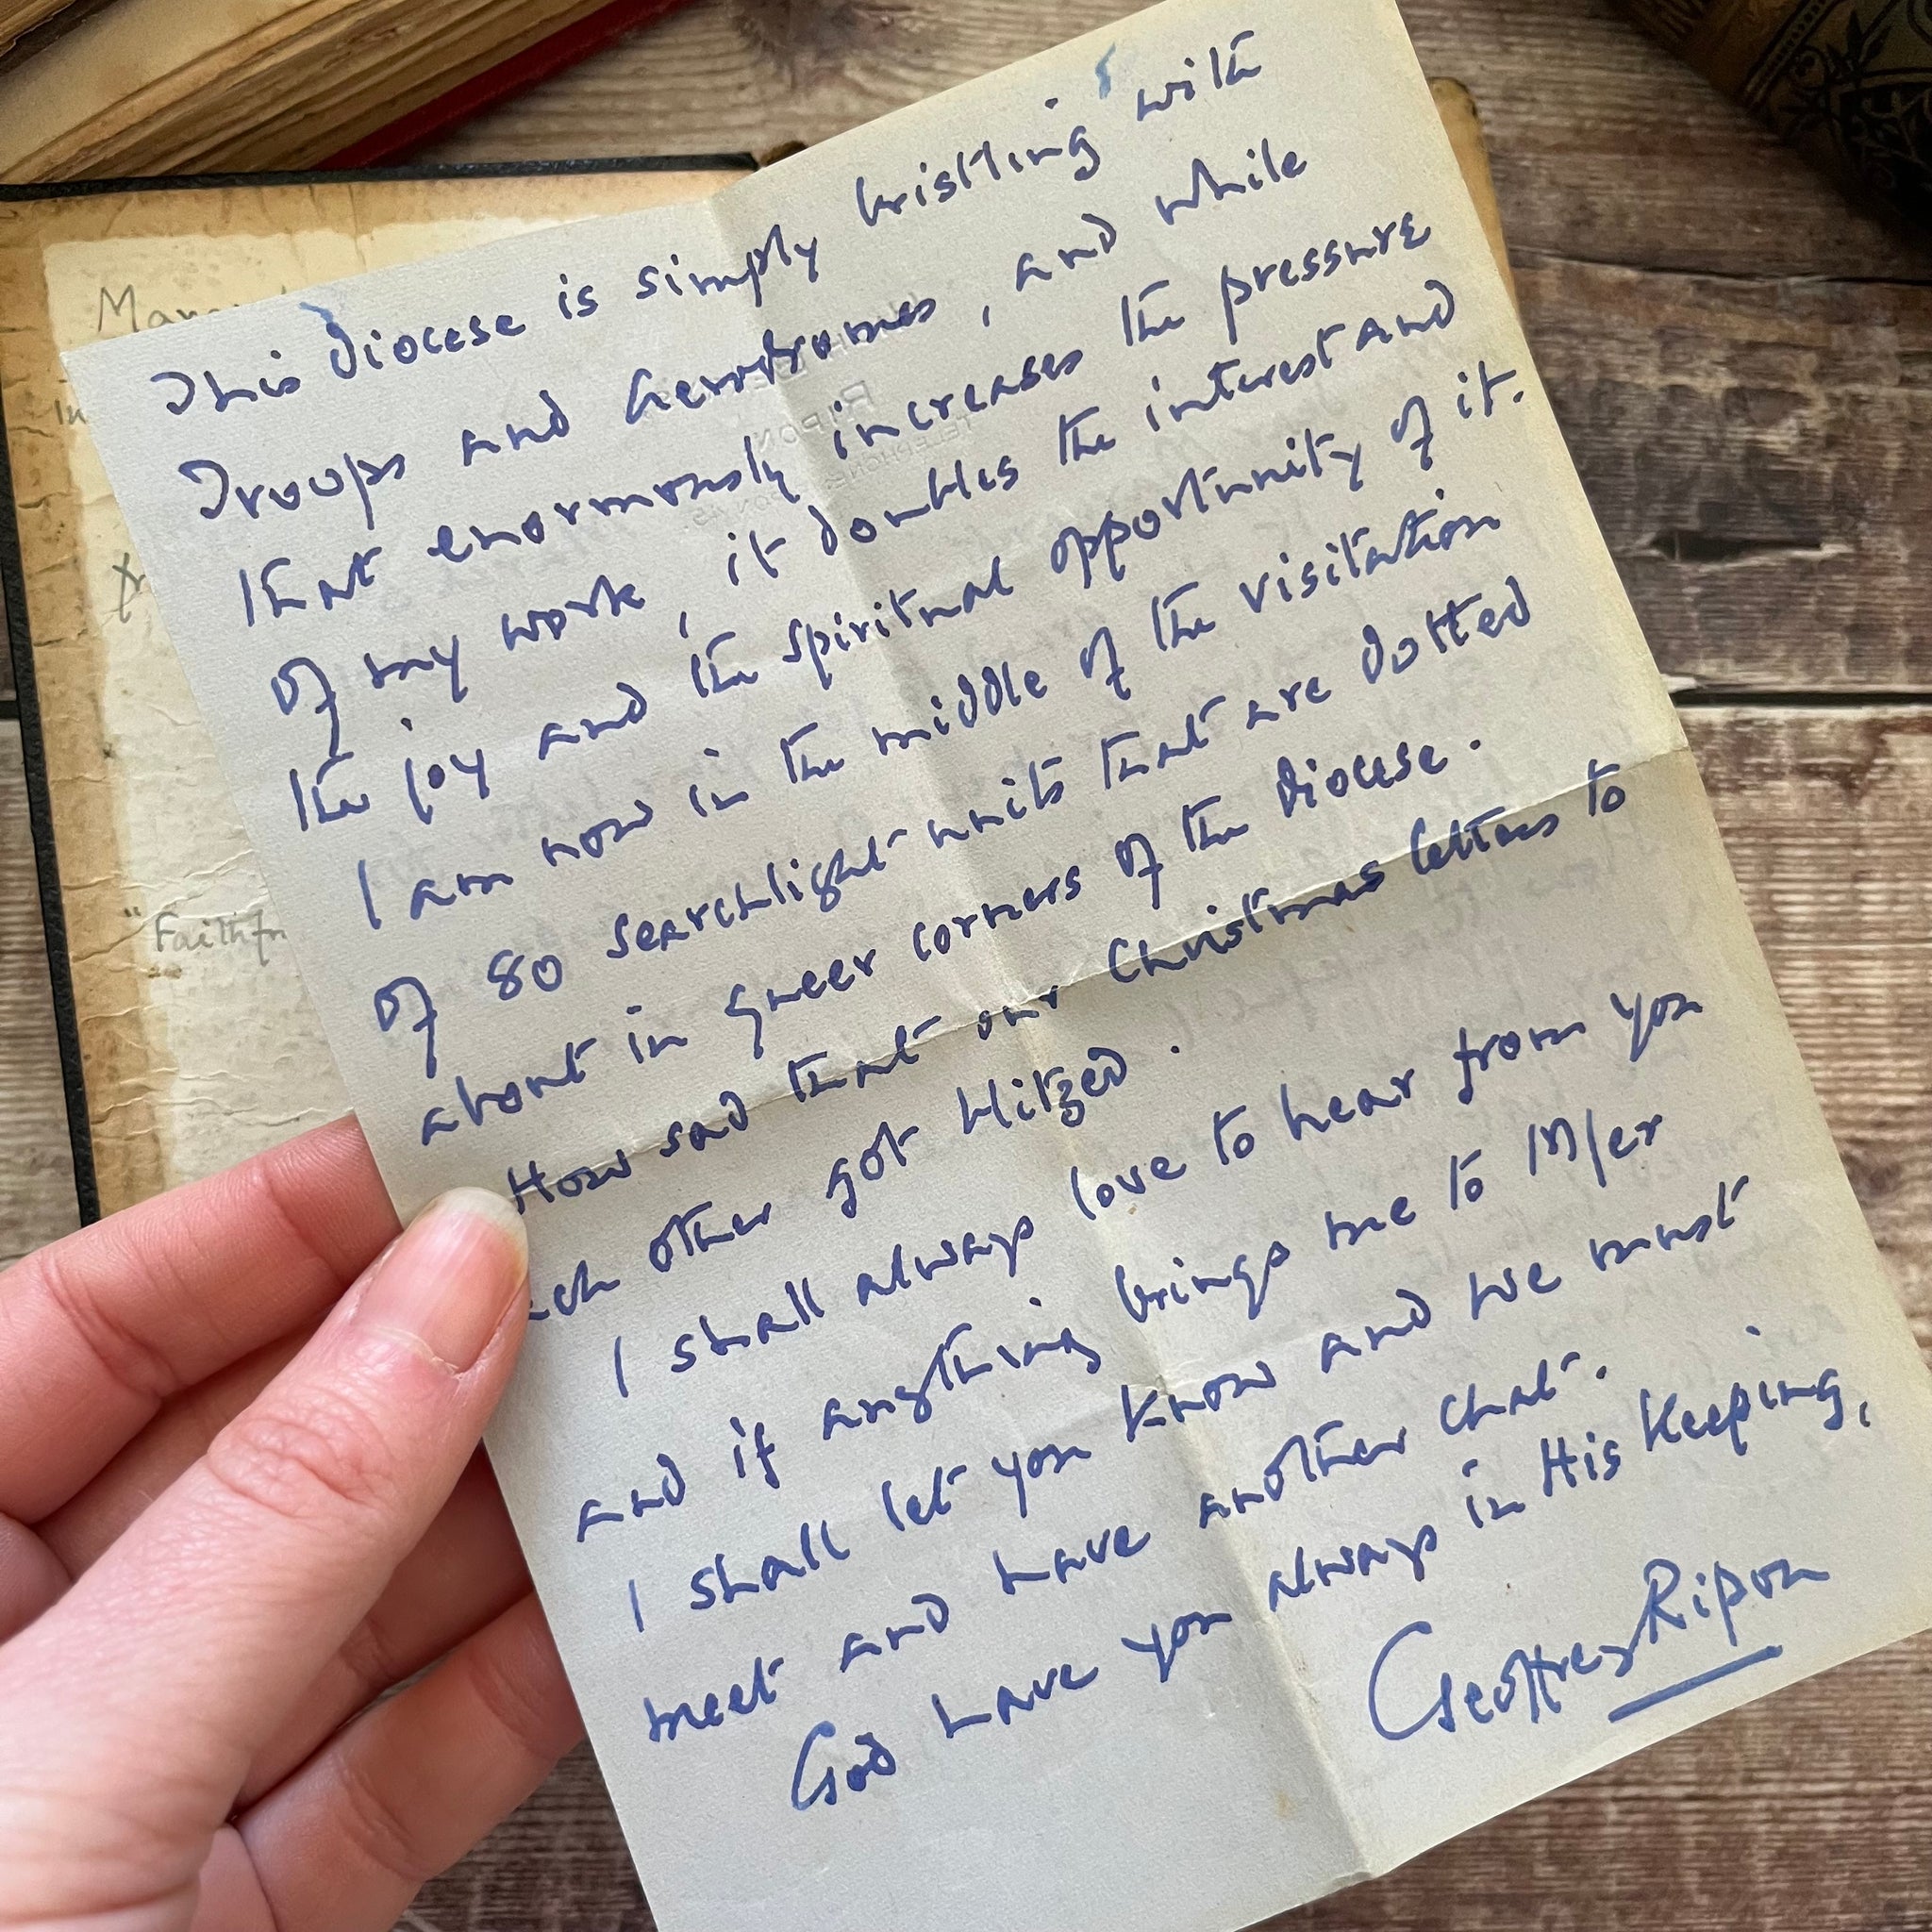 This diocese is simply bristling with
Troops and Aerodromes, and while
that enormously increases the pressure
of my work, it doubles the interest and
the joy and the spiritual opportunity of it.
I am now in the middle of the visitation
of 80 searchlight units that are dotted
about in queer corners of the diocese.
How sad that our Christmas letters to
ach other got blitzed.
I shall always love to hear from you
and if anything brings me to M/er
I shall let you know and we must
meet and have another chat.
God have you always in His Keeping,
Geoffrey Ripon
RIPON
"Faithfu